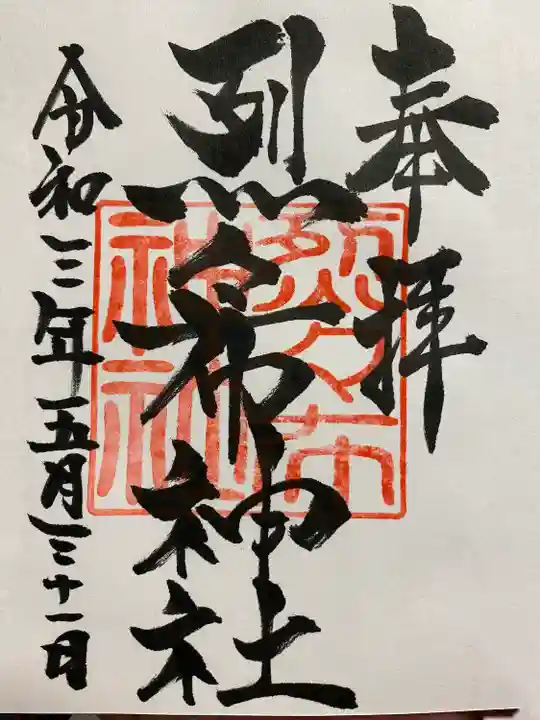 奉拝
烈々布神社
令和三年五月三十一日
烈々布
神社